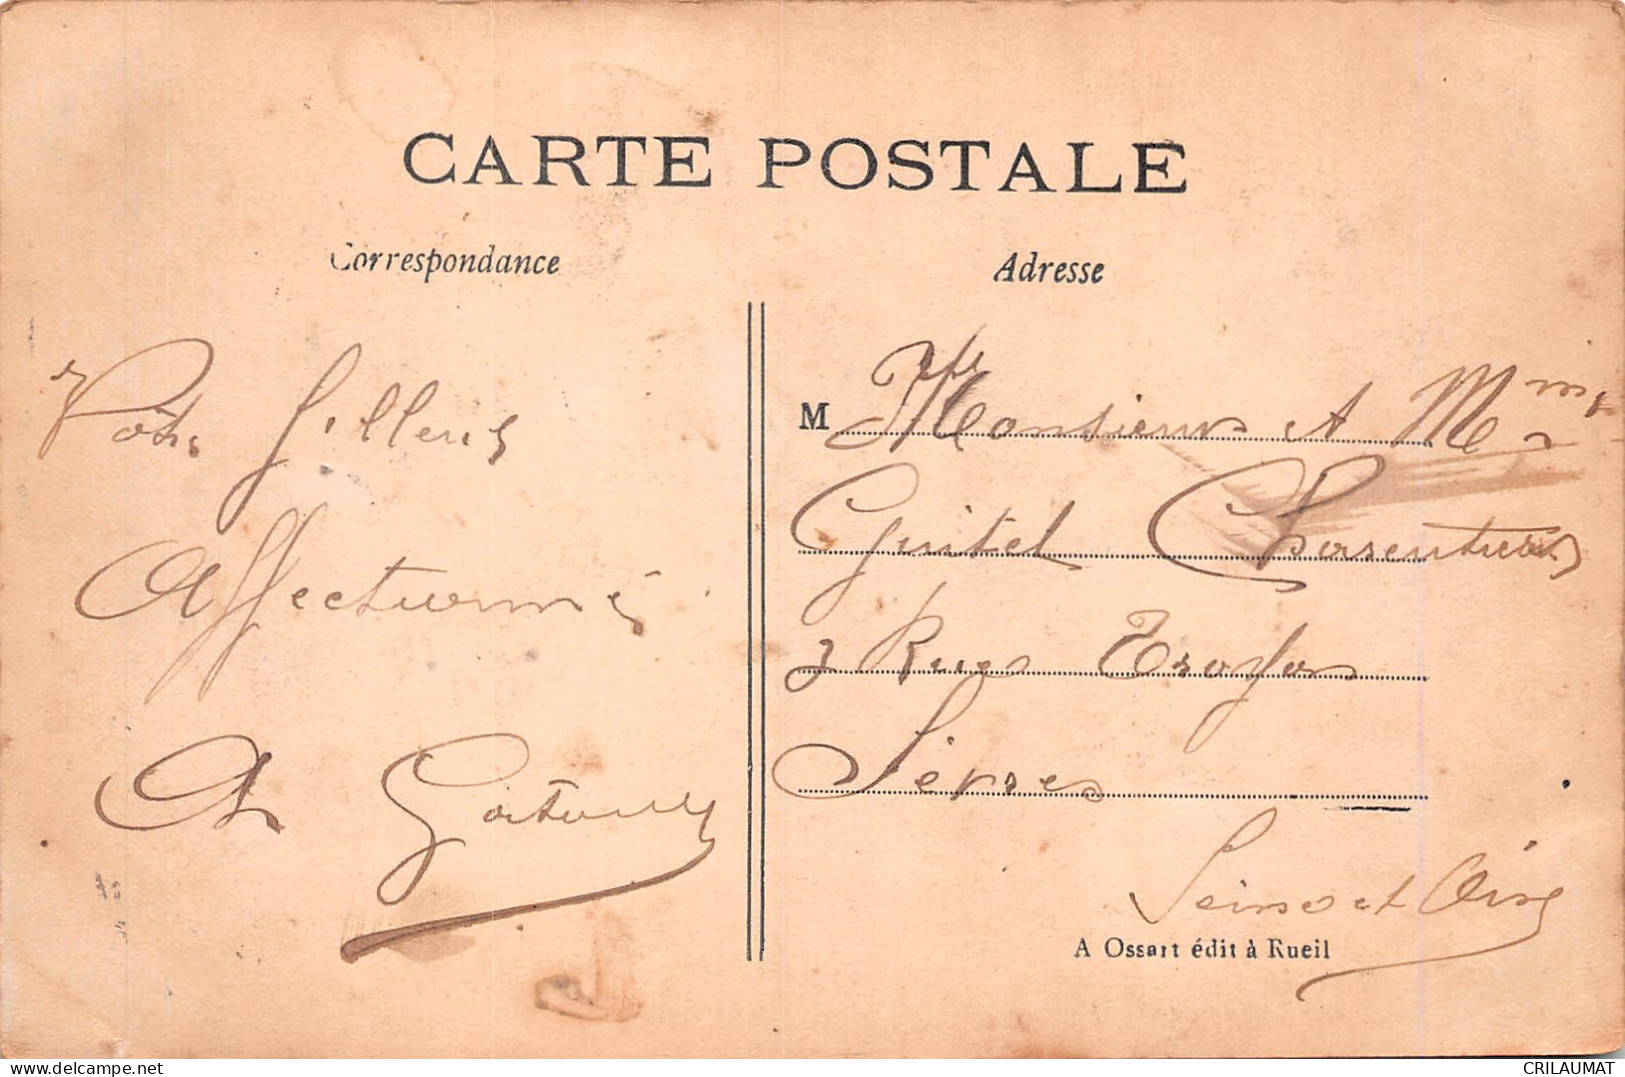 CARTE POSTALE
Correspondance
Adresse
Votre filleul
Affectionné
M Monsieur et Mme
Guitel Charentier
3 Rue Troyon
Sèvres
Seine et Oise
A Ossart édit à Rueil
CRILAUMAT